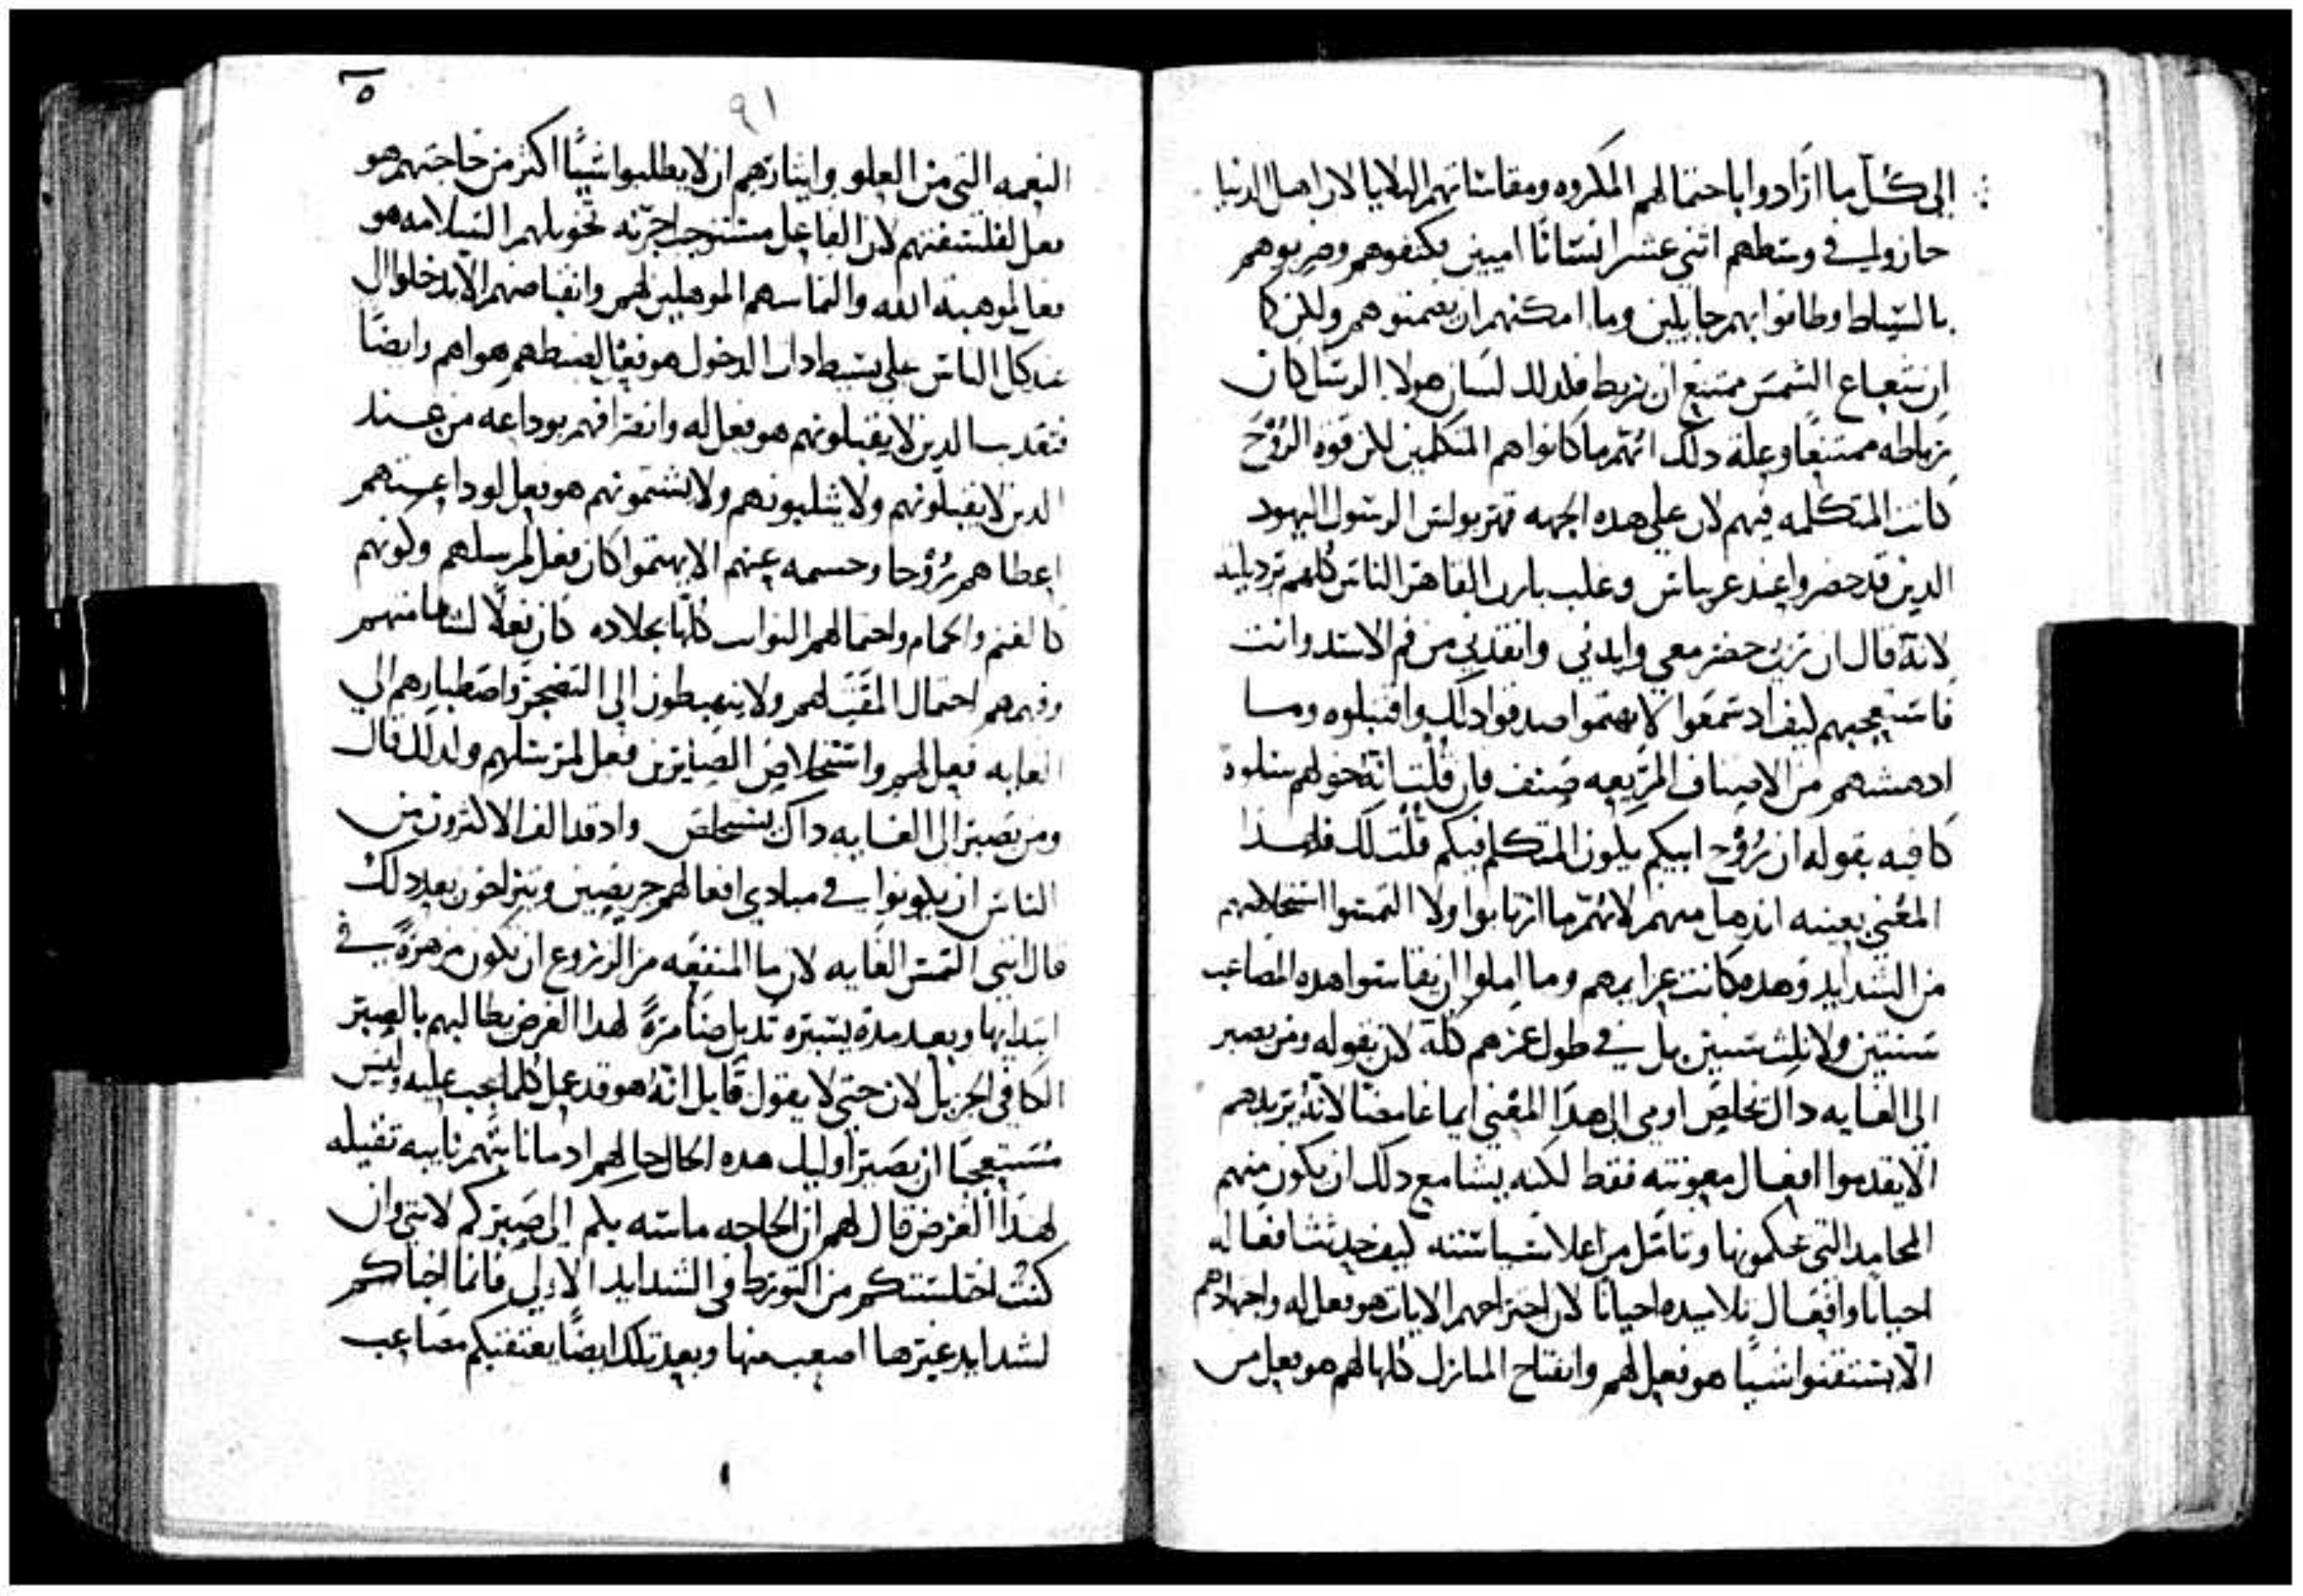 إلى كل ما ارادوا باحتمالهم المكروه ومقاساتهم البلايا لان اهل الدنيا
حازوا في وسطهم اثني عشر انسانًا اميين فكتفوهم وضربوهم
بالسياط وطافوا بهم جايلين وما امكنهم ان يضمنوهم ولكن كما
ان شعاع الشمس ممتنع ان يربط فلدلك لسان هولا الرسل كان
رباطه ممتنعًا وعلة دلك انهم ما كانوا هم المتكلمين لكن قوه الرُوْحَ
كانت المتكلمه فيهم لان على هده الجهه قهر بولس الرسول اليهود
الدين قد حضروا عند غرباس وغلب نارن القاهر الناس كلهم
لانه قال ان ربي حضر معي وايدني وانقدني من فم الاسد وانت
فاستعجبهم كيف اد سمعوا لا تهتموا صدقوا دلك واقتبلوه وما
ادهشهم من الاصناف المريعه صنف فان قلت انه خولهم سلوة
كافيه بقوله ان رُوْح ابيكم يكون المتكلم فيكم قلت لك فلهدا
المعنى بعينه اندهل منهم لانهم ما ارتابوا ولا التمسوا استخلاصهم
من الشدايد وهده كانت عزايمهم وما املوا ان يقاسوا هده المصاعب
سنتين ولا ثلث سنين بل في طول عمرهم كله لان بقوله ومن يصبر
إلى الغايه داك يخلص اومى الى هدا المعنى ايما غامضًا لانه يريدهم
الا يقدموا افعال معونته فقط لكنه يشا مع دلك ان يكون منهم
المحامد التي يحكمونها وتامل من اعلا سياسته كيف حدثت افعاله
احيانا وافعال تلاميده احيانًا لان اجتراحهم الايات هو فعل له واجتهادهم
الا يستقنوا شيا هو فعل لهم وانفتاح المنازل كلها لهم هو فعل من
٩١
٥
النعمه التي من العلو وايثارهم ان لا يطلبوا شيًا اكثر من حاجتهم هو
فعل لفلسفتهم لان الفاعل مستوجب اجرته تخويلهم السلامه هو
فعل لموهبة الله والتماسهم الموهلين لهم وانقباضهم الا يدخلوا الى
عند كل الناس على بسيط دات الدخول هو فعل لضبطهم هواهم وايضًا
فتعديب الدين لا يقبلونهم هو فعل له وانصرافهم بوداعه من عند
الدين لا يقبلونهم ولا يثلبونهم ولا يشتمونهم هو فعل لوداعتهم
اعطاهم رُوْحا وحسمه عنهم الا يهتموا كان فعل لمرسلهم وكونهم
كالغنم والحمام واحتمالهم النوايب كلها بجلاده كان فعلًا
وفهمهم احتمال المقت لهم ولا يهبطون الى التضجر واصطبارهم الي
الغايه فعل لهم واستخلاص الصابرين فعل لمرسلهم ولدلك قال
ومن يصبر الى الغايه داك يستخلص وادقد الف الاكثرون من
الناس ان يكونوا في مبادي افعالهم حريصين ويتراخون بعد دلك
قال انني التمس الغايه لان ما المنفعه من الزروع ان تكون مزهرةً في
ابتدايها وبعد مدة يسيره تدبل ضامرةً لهدا الغرض يطالبهم بالصبر
الكافي الجزيل لان حتى لا يقول قايل انه هو قد عمل كلما يجب عليه وليس
مستعجبًا ان يصبر اوليك هده الحال حالهم اد ما نابتهم نايبه ثقيله
لهدا الغرض قال لهم ان الحاجه ماسه بكم إلى صبركم لانني وان
كنت اختلستكم من التورط في الشدايد الاولى فانما اخباكم
لشدايد غيرها اصعب منها وبعد تلك ايضًا يعتقبكم مصاعب